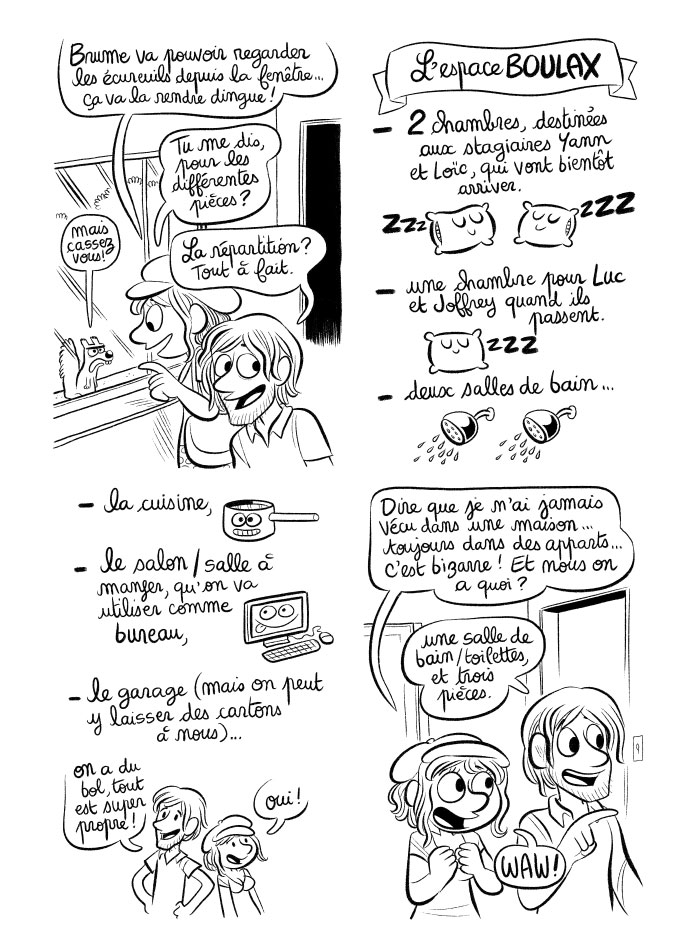 Brume va pouvoir regarder
les écureuils depuis la fenêtre...
ça va la rendre dingue !
Tu me dis,
pour les
différentes
pièces ?
mais
cassez
vous!
La répartition ?
Tout à fait.
L'espace BOULAX
- 2 chambres, destinées
aux stagiaires Yann
et Loïc, qui vont bientôt
arriver.
ZZZz
zZZZ
- une chambre pour Luc
et Joffrey quand ils
passent.
zZZZ
- deux salles de bain...
- la cuisine,
- le salon / salle à
manger, qu'on va
utiliser comme
bureau,
- le garage (mais on peut
y laisser des cartons
à nous)...
on a du
bol, tout
est super
propre !
oui !
Dire que je n'ai jamais
vécu dans une maison...
toujours dans des apparts...
c'est bizarre ! Et nous on
a quoi ?
une salle de
bain/toilettes,
et trois
pièces.
WAW!